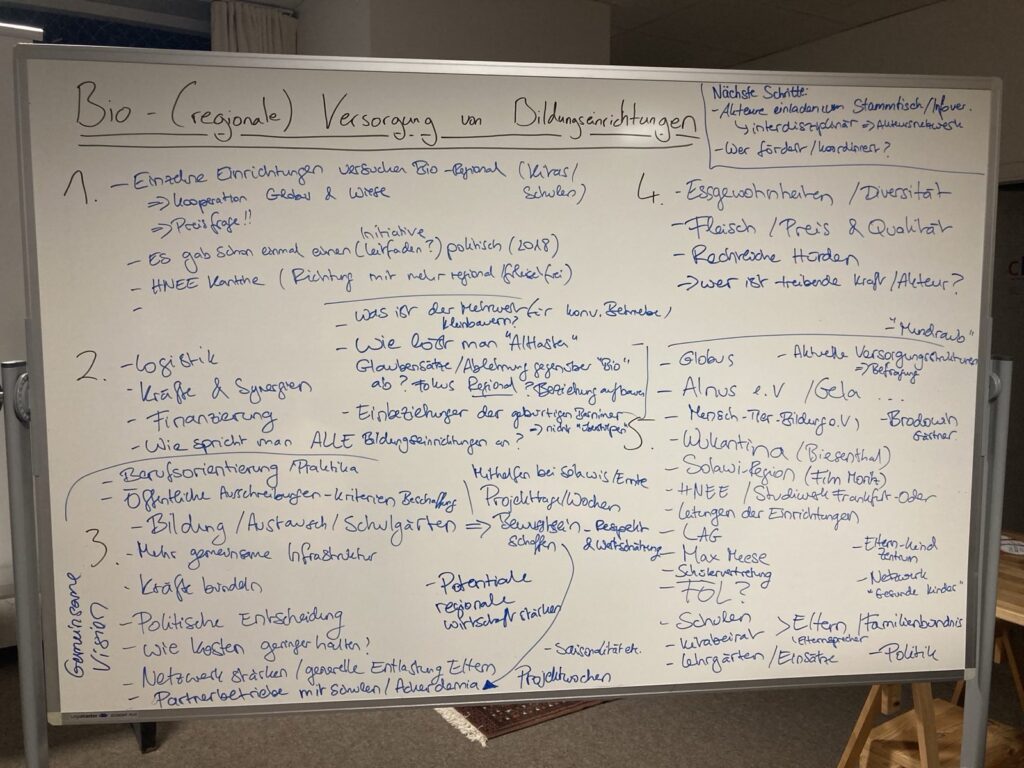 Bio - (regionale) Versorgung von Bildungseinrichtungen
Nächste Schritte:
- Akteure einladen zum Stammtisch/Infover.
↳ interdisziplinär ⇒ Akteursnetzwerk
- Wer fördert/koordiniert?
1.
- Einzelne Einrichtungen versuchen Bio-Regional (Kitas/
Schulen)
⇒ Kooperation Globus & Wiese
⇒ Preisfrage!!
Initiative
- Es gab schon einmal einen (Leitfaden?) politisch (2018)
- HNEE Kantine (Richtung mit mehr regional/fleischfrei)
-
2.
- Logistik
- Kräfte & Synergien
- Finanzierung
- Wie spricht man ALLE Bildungseinrichtungen an?
- Was ist der Mehrwert für konv. Betriebe/
Kleinbauern?
- Wie löst man "Altlasten"
Glaubensätze/Ablehnung gegenüber "Bio"
ab? Fokus Regional? Beziehung aufbauen
- Einbeziehung der gebürtigen Barnimer
⇒ nicht "überstülpen"
3.
Gemeinsame
Vision
- Berufsorientierung/Praktika
- Öffentliche Ausschreibungen - Kriterien Beschaffung
- Bildung/Austausch/Schulgärten ⇒ Bewusstsein
schaffen
- Respekt
& Wertschätzung
Mithelfen bei Solawis/Ernte
Projekttage/Wochen
- Mehr gemeinsame Infrastruktur
- Kräfte bündeln
- Politische Entscheidung
- Wie Kosten geringer halten?
- Netzwerk stärken/generelle Entlastung Eltern
- Partnerbetriebe mit Schulen/Ackerdemia
- Potentiale
regionale
Wirtschaft stärken
- Saisonalität etc.
Projektwochen
4.
- Essgewohnheiten/Diversität
- Fleisch/Preis & Qualität
- Rechtliche Hürden
→ wer ist treibende Kraft/Akteur?
5.
- "Mundraub"
- Globus
- Aktuelle Versorgungsstrukturen
⇒ Befragung
- Alnus e.V /Gela ...
- Mensch-Tier-Bildung e.V,
- Brodowin
Gärtner
- Wukantina (Biesenthal)
- Solawi-Region (Film Moritz)
- HNEE / Studiwerk Frankfurt-Oder
- Leitungen der Einrichtungen
- LAG
- Max Meese
- Schülervertretung
- FÖL?
- Eltern-Kind
zentrum
- Netzwerk
"Gesunde Kinder"
- Schulen
- Kitabeirat
> Eltern/Familienbündnis
Elternsprecher
- Lehrgärten/Einsätze
- Politik